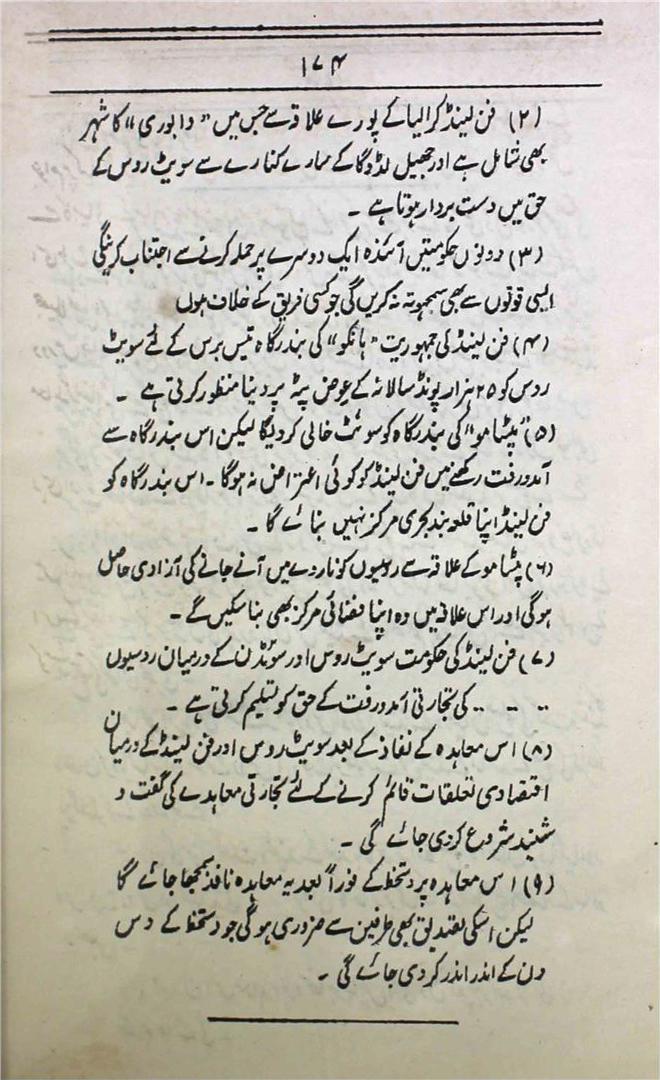 ۱۷۴
(۲) فن لینڈ کرالیا کے پورے علاقہ سے جس میں "وابوری" کا شہر
بھی شامل ہے اور جھیل لڈوگا کے سارے کنارے سے سویٹ روس کے
حق میں دست بردار ہوتا ہے ۔
(۳) دونوں حکومتیں آئندہ ایک دوسرے پر حملہ کرنے سے اجتناب کرینگی
ایسی قوتوں سے بھی سمجھوتہ نہ کریں گی جو کسی فریق کے خلاف ہوں
(۴) فن لینڈ کی جمہوریت "ہانکو" کی بندرگاہ تیس برس کے لئے سویٹ
روس کو ۲۵ ہزار پونڈ سالانہ کے عوض پٹہ پر دینا منظور کرتی ہے ۔
(۵) "پٹسامو" کی بندرگاہ کو سوئٹ خالی کر دیگا لیکن اس بندرگاہ سے
آمدورفت رکھنے میں فن لینڈ کو کوئی اعتراض نہ ہوگا ۔ اس بندرگاہ کو
فن لینڈ اپنا قلعہ بند بحری مرکز نہیں بنائے گا ۔
(۶) پٹسامو کے علاقہ سے روسیوں کو ناروے میں آنے جانے کی آزادی حاصل
ہوگی اور اس علاقہ میں وہ اپنا فضائی مرکز بھی بنا سکیں گے ۔
(۷) فن لینڈ کی حکومت سویٹ روس اور سوئڈن کے درمیان روسیوں
.. - .. کی تجارتی آمدورفت کے حق کو تسلیم کرتی ہے ۔
(۸) اس معاہدہ کے نفاذ کے بعد سویٹ روس اور فن لینڈ کے درمیان
اقتصادی تعلقات قائم کرنے کے لئے تجارتی معاہدے کی گفت و
شنید شروع کر دی جائے گی ۔
(۹) اس معاہدہ پر دستخط کے فوراً بعد یہ معاہدہ نافذ سمجھا جائے گا
لیکن اسکی تصدیق بھی طرفین سے ضروری ہوگی جو دستخط کے دس
دن کے اندر اندر کر دی جائے گی ۔